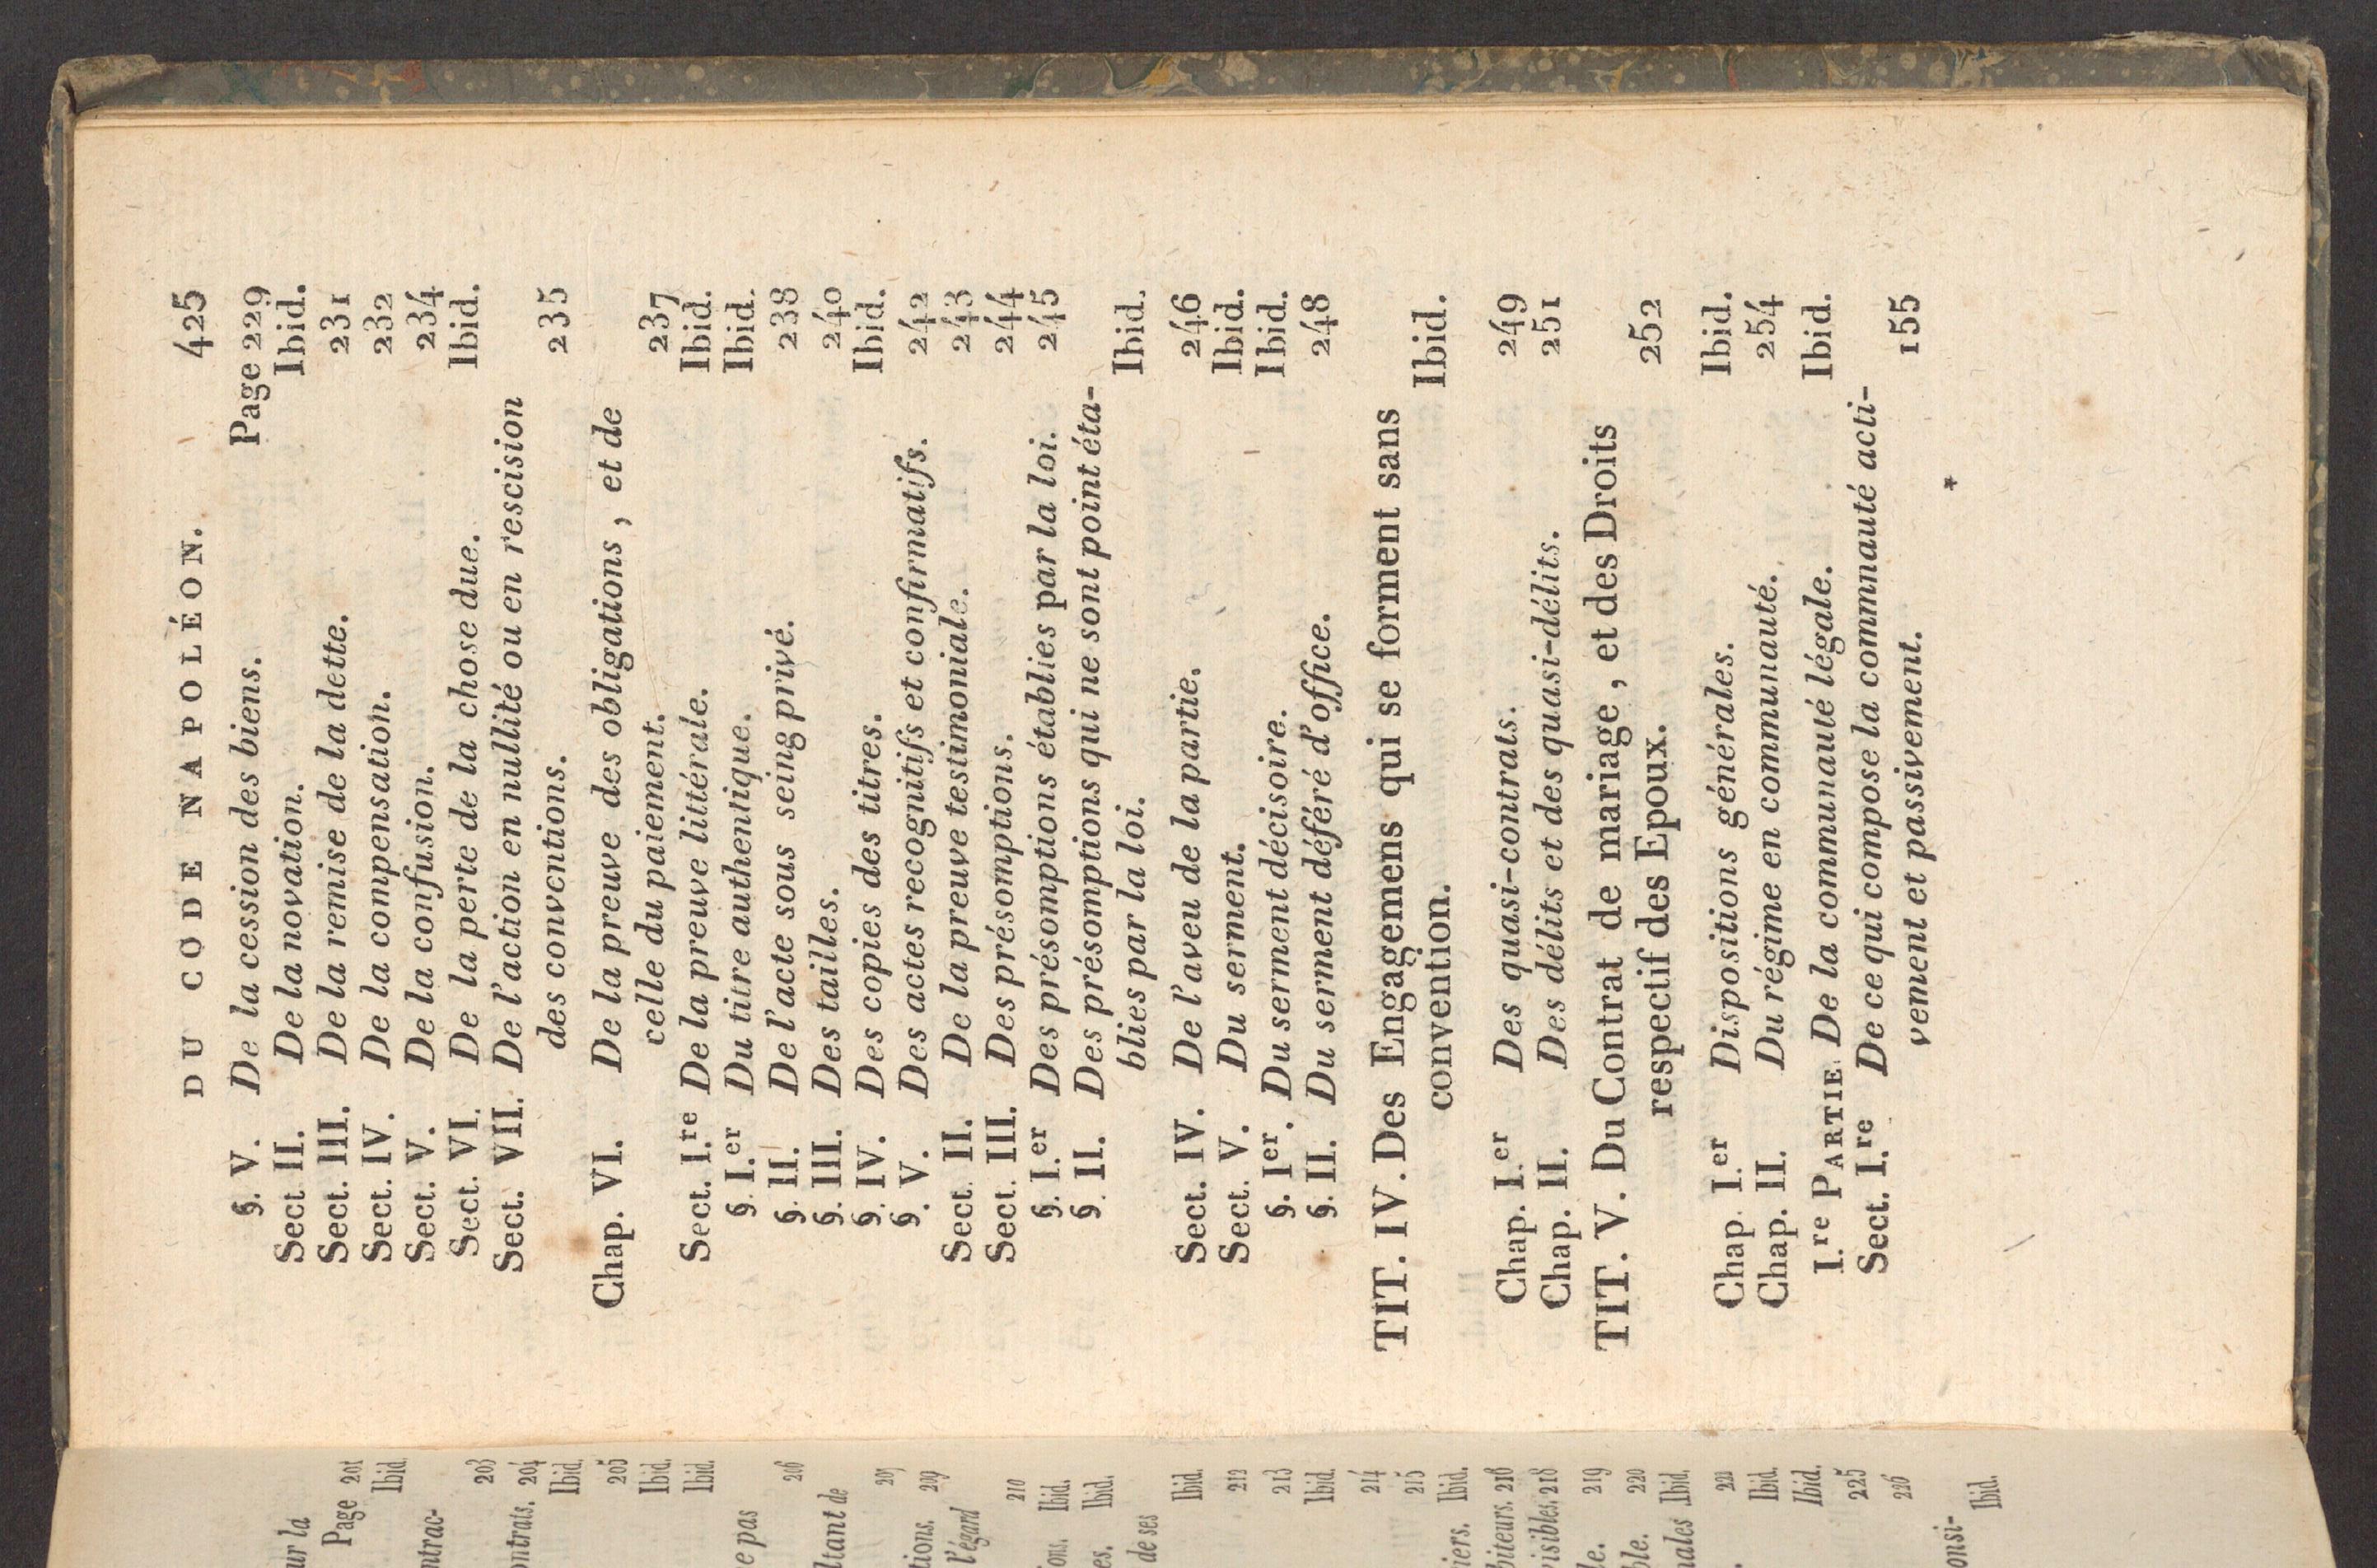 DU CODE NAPOLÉON. 425
§. V. De la cession des biens. Page 229
Sect. II. De la novation. Ibid.
Sect. III. De la remise de la dette. 231
Sect. IV. De la compensation. 232
Sect. V. De la confusion. 234
Sect. VI. De la perte de la chose due. Ibid.
Sect. VII. De l'action en nullité ou en rescision
des conventions. 235
Chap. VI. De la preuve des obligations, et de
celle du paiement. 237
Sect. I.re De la preuve littérale. Ibid.
§. I.er Du titre authentique. Ibid.
§. II. De l'acte sous seing privé. 238
§. III. Des tailles. 240
§. IV. Des copies des titres. Ibid.
§. V. Des actes recognitifs et confirmatifs. 242
Sect. II. De la preuve testimoniale. 243
Sect. III. Des présomptions. 244
§. I.er Des présomptions établies par la loi. 245
§. II. Des présomptions qui ne sont point éta-
blies par la loi. Ibid.
Sect. IV. De l'aveu de la partie. 246
Sect. V. Du serment. Ibid.
§. Ier. Du serment décisoire. Ibid.
§. II. Du serment déféré d'office. 248
TIT. IV. Des Engagemens qui se forment sans
convention. Ibid.
Chap. I.er Des quasi-contrats. 249
Chap. II. Des délits et des quasi-délits. 251
TIT. V. Du Contrat de mariage, et des Droits
respectif des Epoux. 252
Chap. I.er Dispositions générales. Ibid.
Chap. II. Du régime en communauté. 254
I.re PARTIE. De la communauté légale. Ibid.
Sect. I.re De ce qui compose la commnauté acti-
vement et passivement. 155
*
ur la
Page 201
Ibid.
ntrac-
203
ontrats. 204
Ibid.
205
Ibid.
Ibid.
e pas
206
ltant de
207
tions. 209
l'égard
210
ons. Ibid.
es. Ibid.
de ses
Ibid.
212
213
Ibid.
214
215
iers. Ibid.
biteurs. 216
risibles. 218
le. 219
ble. 220
nales Ibid.
221
Ibid.
Ibid.
225
226
onsi-
Ibid.